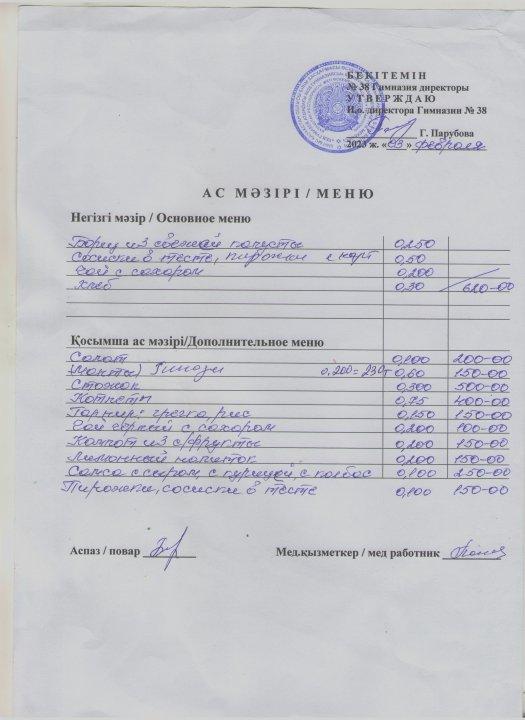 БЕКІТЕМІН
№ 38 Гимназия директоры
УТВЕРЖДАЮ
И.о. директора Гимназии № 38
Г. Парубова
2023 ж. «03» февраля
АС МӘЗІРІ / МЕНЮ
Негізгі мәзір / Основное меню
Борщ из свежей капусты 0,250
Сосиски в тесте, пирожки с карт 0,50
Чай с сахором 0,200
Хлеб 0,30 620-00
Қосымша ас мәзірі/Дополнительное меню
Салат 0,100 200-00
Манты) 0,200=230т 0,60 150-00
0,300 500-00
Котлеты 0,75 400-00
Гарнир: гречка, рис 0,150 150-00
Чай с сахором 0,200 100-00
Компот из с/фрукты 0,200 150-00
Лимонный напиток 0,200 150-00
Самса с сыром, с курицей, с колбас 0,100 250-00
Пирожки, сосиски в тесте 0,100 150-00
Аспаз / повар Мед.қызметкер / мед работник